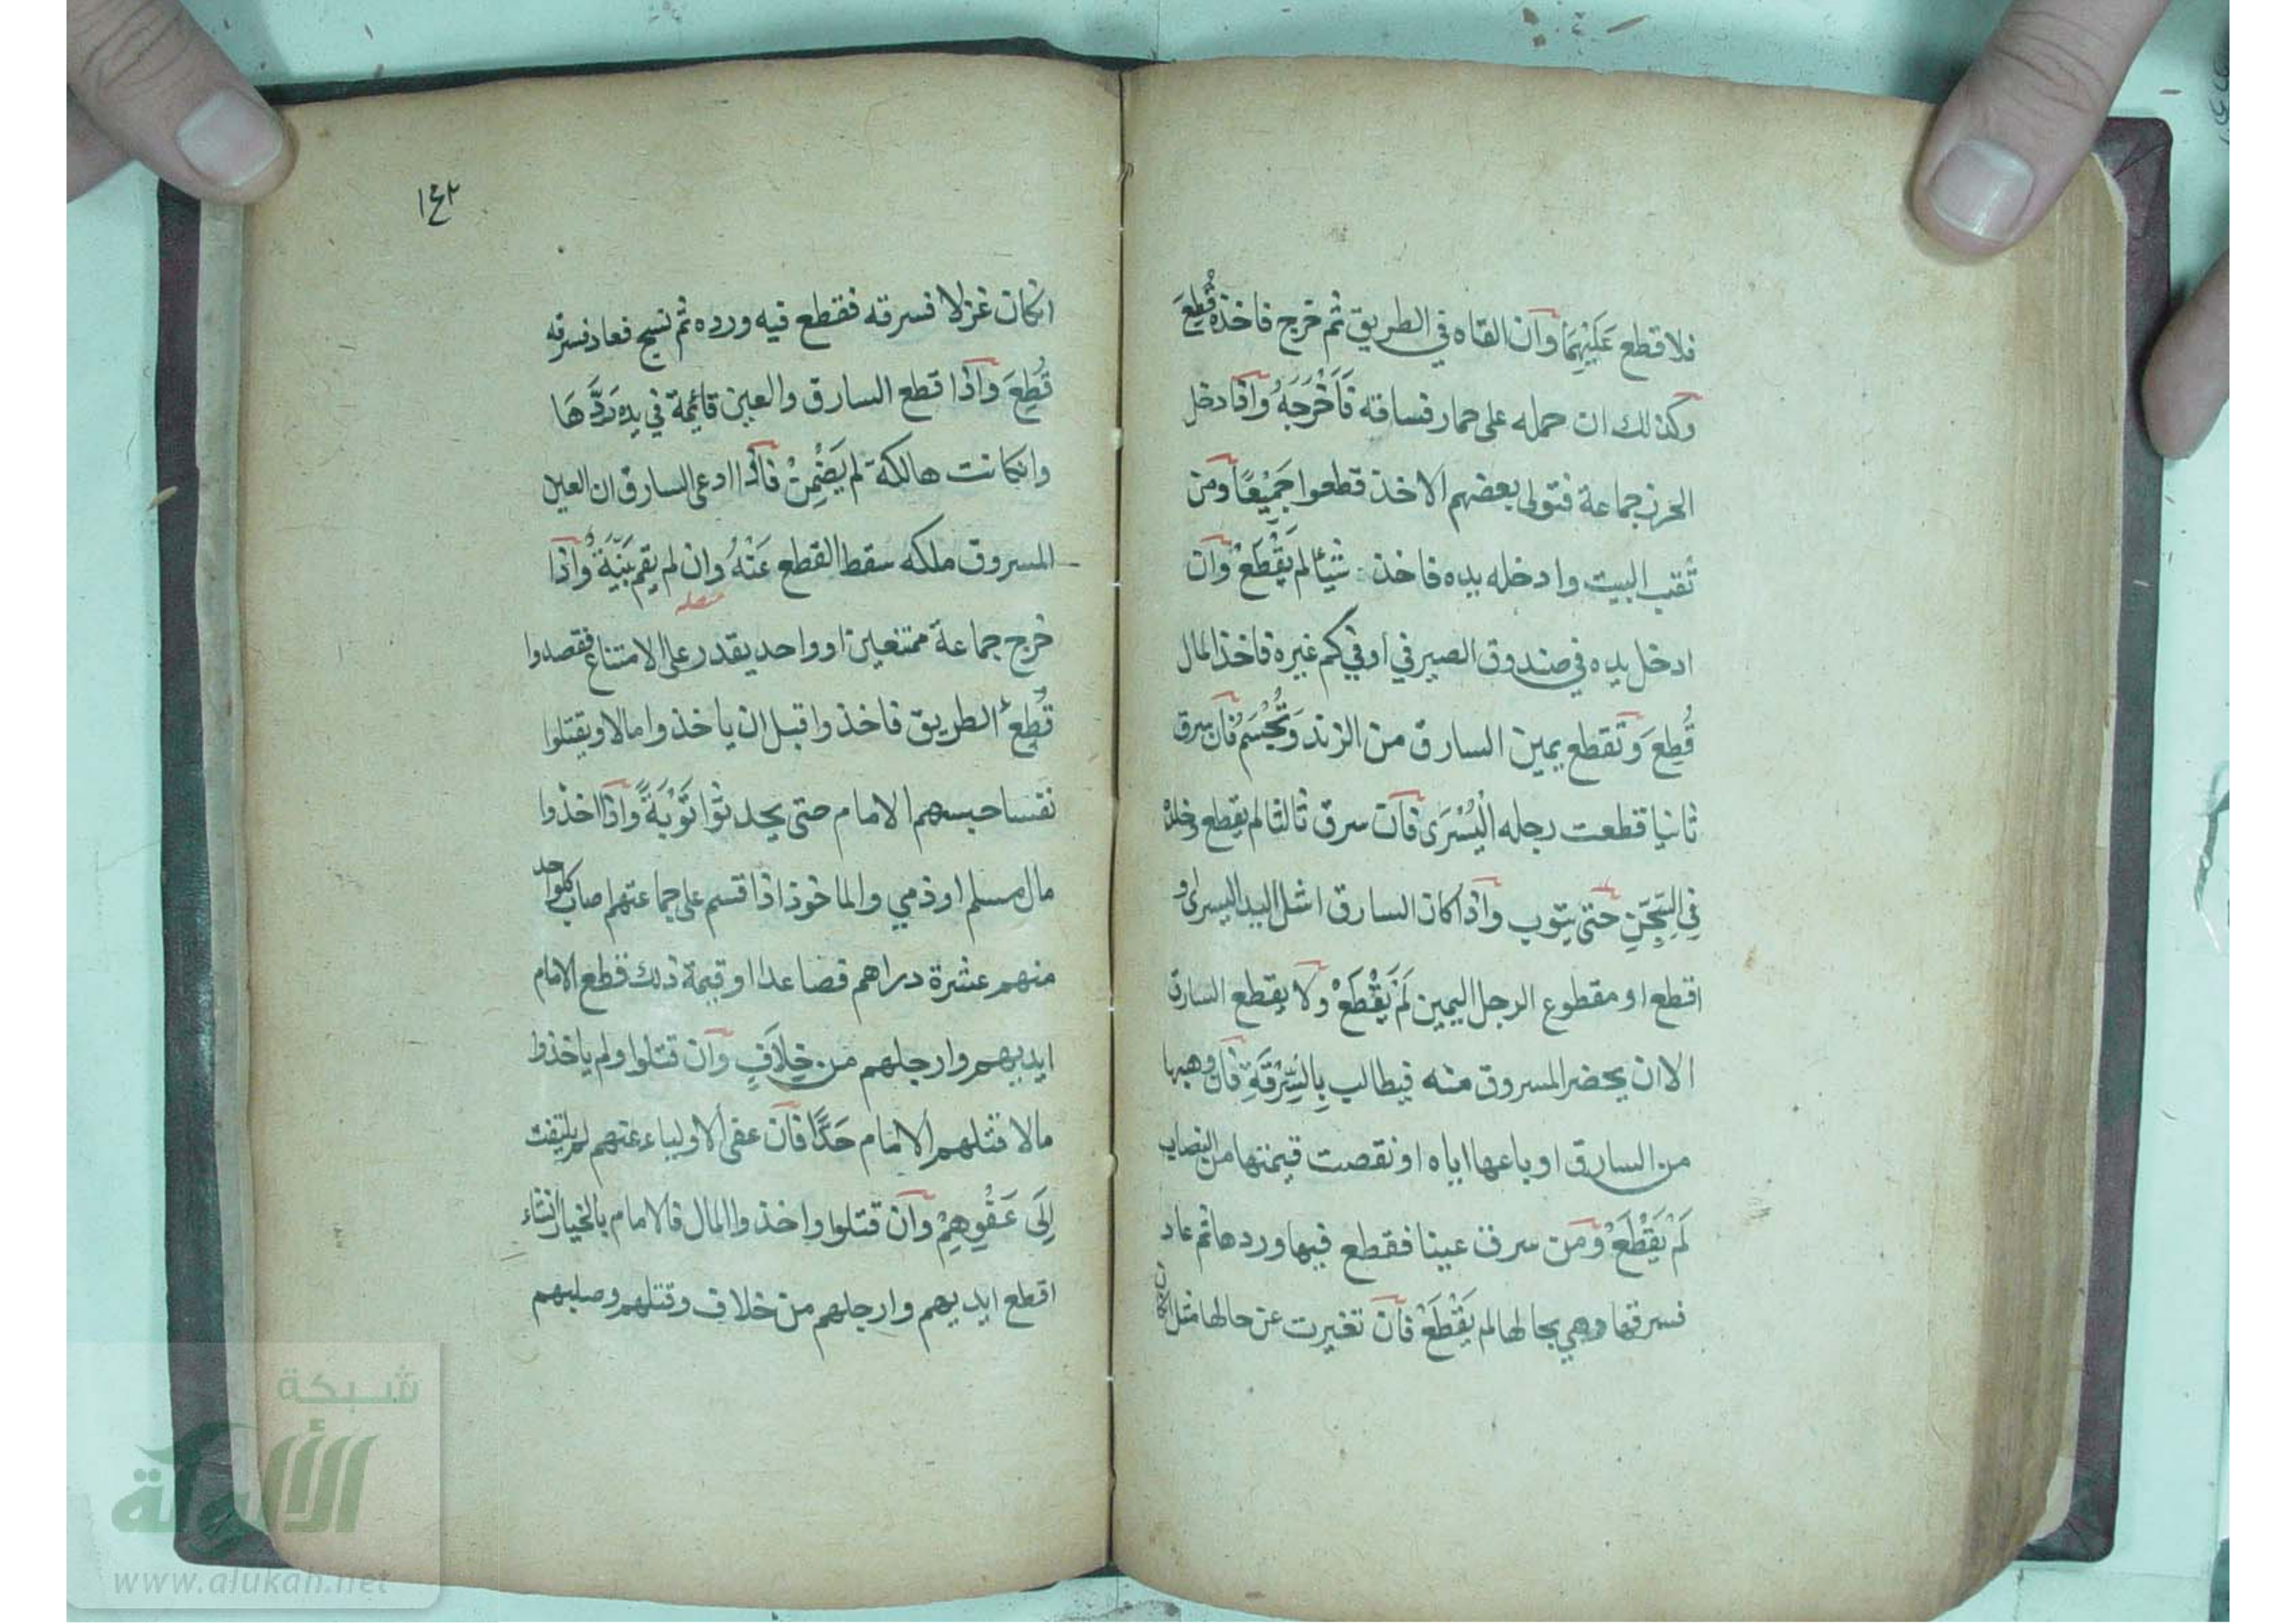 فلا قطع عَلَيْهِمَا وان القاه في الطريق ثم خرج فاخذه قُطِعَ
وكذلك ان حمله على حمار فساقه فَاَخْرَجَهُ واذا دخل
الحرز جماعة فتولى بعضهم الاخذ قطعوا جَمِيْعًا ومن
ثقب البيت وادخله يده فاخذ شيئا لم يَقْطَعْ وان
ادخل يده في صندوق الصيرفي او في كم غيره فاخذ المال
قُطِعَ وتقطع يمين السارق من الزند وَتُحْسَمُ فان سرق
ثانيا قطعت رجله الْيُسْرَى فان سرق ثالثا لم يقطع وخلد
فِي السِّجْنِ حتى يتوب واذا كان السارق اشل اليد اليسرى او
اقطع او مقطوع الرجل اليمين لَمْ يَقْطَعْ ولا يقطع السارق
الا ان يحضر المسروق منه فيطالب بِالسَّرِقَةِ فان وهبها
من السارق او باعها اياه او نقصت قيمتها من النصاب
لَمْ يَقْطَعْ ومن سرق عينا فقطع فيها وردها ثم عاد
فسرقها وهي بحالها لم يَقْطَعْ فان تغيرت عن حالها مثل
١٤٢
انكان غزلا فسرقه فقطع فيه ورده ثم نسج فعاد فسرقه
قُطِعَ واذا قطع السارق والعين قائمة في يده رَدَّهَا
وانكانت هالكة لم يَضْمِنْ فاذا ادعى السارق ان العين
المسروق ملكه سقط القطع عَنْهُ وان لم يقم بَيِّنَةً واذا
خرج جماعة ممتنعين او واحد يقدر على الامتناع فقصدوا
قُطِعَ الطريق فاخذوا قبل ان ياخذوا مالا ويقتلوا
نفسا حبسهم الامام حتى يحدثوا تَوْبَةً واذا اخذوا
مال مسلم او ذمي والماخوذ اذا قسم على جماعتهم اصاب كلواحد
منهم عشرة دراهم فصاعدا او قيمة ذلك قطع الامام
ايديهم وارجلهم من خِلَافٍ وان قتلوا ولم ياخذوا
مالا قتلهم الامام حَدًّا فان عفى الاولياء عنهم لم يلتفت
اِلَى عَفْوِهِمْ وان قتلوا واخذوا المال فالامام بالخيار انشاء
اقطع ايديهم وارجلهم من خلاف وقتلهم وصلبهم
شبكة
الألوكة
www.alukah.net